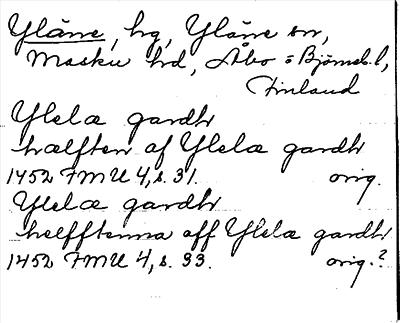 Yläne, hg, Yläne sn,
Masku hd, Åbo o Björneb. l,
Finland
Ylelæ gardh
hælften af Ylelæ gardh
1452 FMU 4, s. 31. orig.
Ylelæ gardh
helfftenna aff Ylelæ gardh
1452 FMU 4, s. 33. orig.?